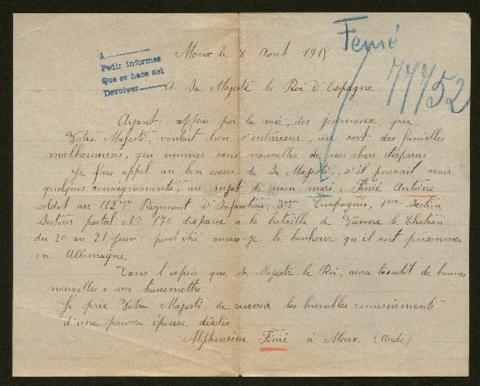 A
Pedir informes
Que se hace asi
Devolver
Fenié
77752
Moux le 8 Aout 1915
A Sa Majesté le Roi d'Espagne
Ayant appris par la voie, des journaux que
Votre Majesté, voulait bien s'intéresser, au sort des familles
malheureuses, qui sommes sans nouvelles de nos chers disparus
Je fais appel au bon coeur de Sa Majesté, s'il pourrait avoir
quelques renseignements, au sujet de mon mari, Fenié Antoine
soldat au 112ème Regiment d'Infanterie, Compagnie, Section
Secteur postal No 170 disparu à la bataille de Vienne le Château
du 20 au 21 juin: peut être aurais-je le bonheur qu'il soit prisonnier
en Allemagne.
Dans l'espoir que sa Majesté le Roi, aura bientôt de bonnes
nouvelles à me transmettre
Je prie Votre Majesté, de recevoir les humbles remerciements
d'une pauvre épouse désolée
Alphonsine Fenié à Moux. (Aude)